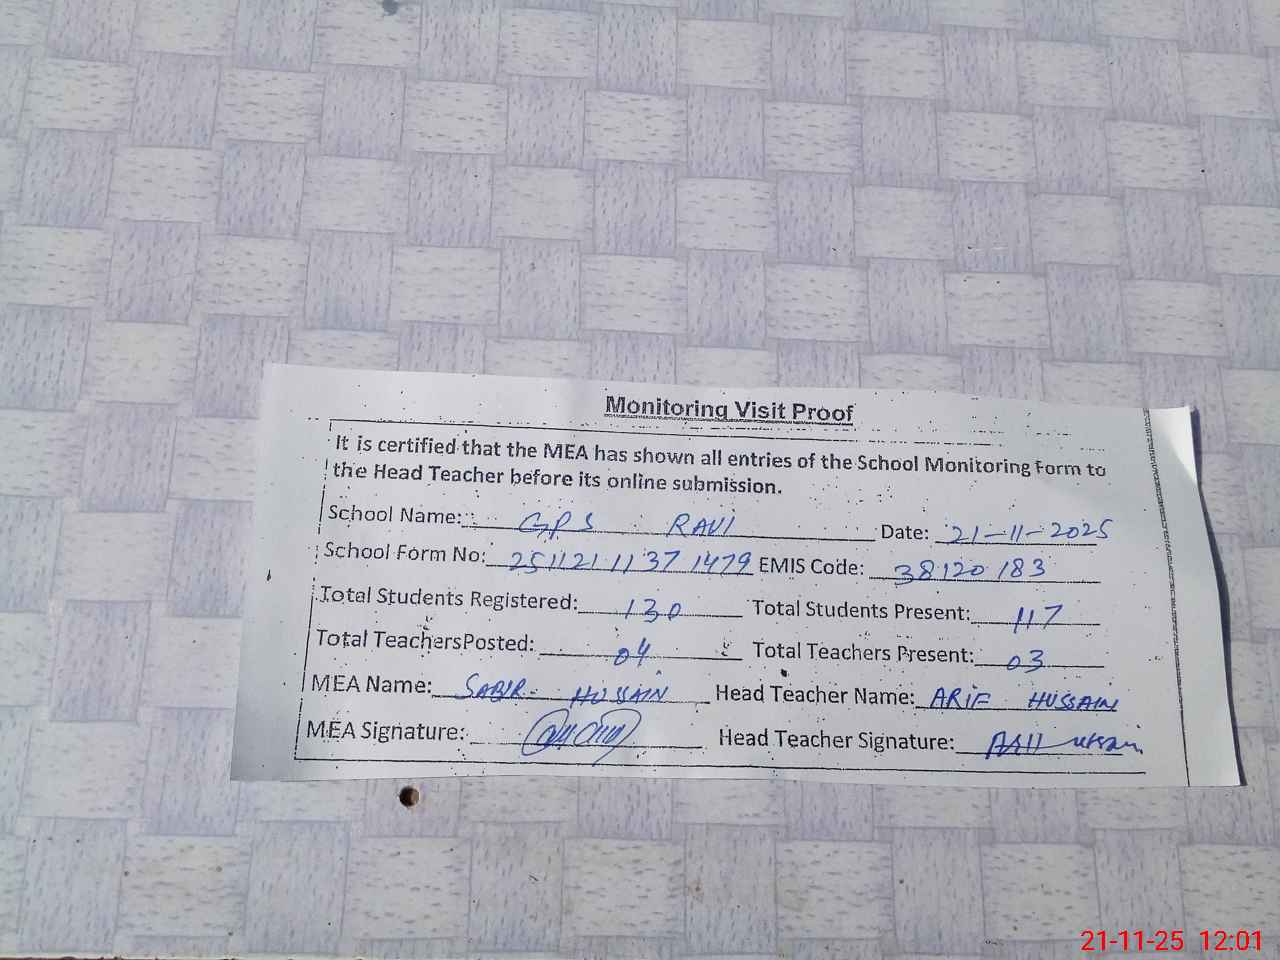 Monitoring Visit Proof
It is certified that the MEA has shown all entries of the School Monitoring Form to
the Head Teacher before its online submission.
School Name: GPS RAVI Date: 21-11-2025
School Form No: 251121 1137 1479 EMIS Code: 38120183
Total Students Registered: 130 Total Students Present: 117
Total Teachers Posted: 04 Total Teachers Present: 03
MEA Name: SABIR HUSSAIN Head Teacher Name: ARIF HUSSAIN
MEA Signature: Head Teacher Signature:
21-11-25 12:01